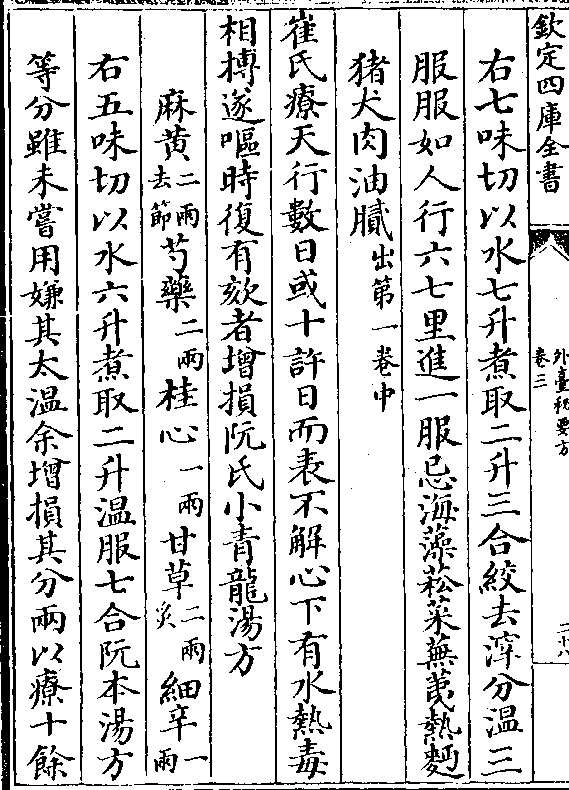 欽定四庫全書
外臺秘要方
卷三
二十八
右七味切以水七升煮取二升三合絞去滓分温三
服服如人行六七里進一服忌海藻菘菜蕪荑熱麫
猪犬肉油膩出第一卷中
崔氏療天行數日或十許日而表不解心下有水熱毒
相搏遂嘔時復有欬者增損阮氏小青龍湯方
麻黄二兩去節芍藥二兩桂心一兩甘草二兩炙細辛一兩
右五味切以水六升煮取二升温服七合阮本湯方
等分雖未嘗用嫌其太温余增損其分兩以療十餘